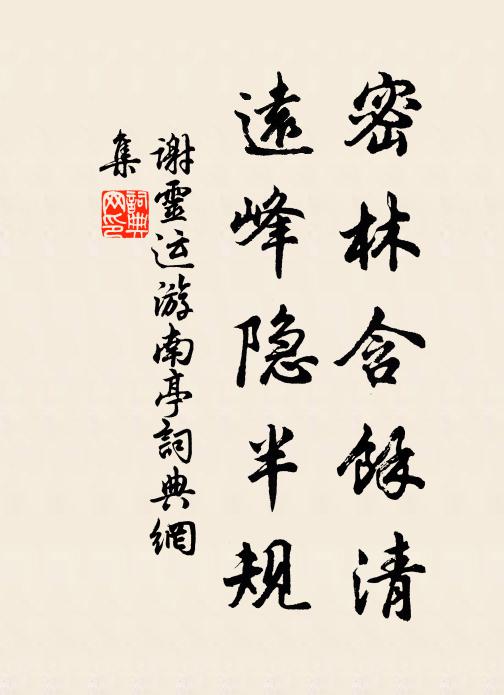 密林含餘清
遠峰隐半规
谢靈运游南亭詞典網
集
詞典
网印